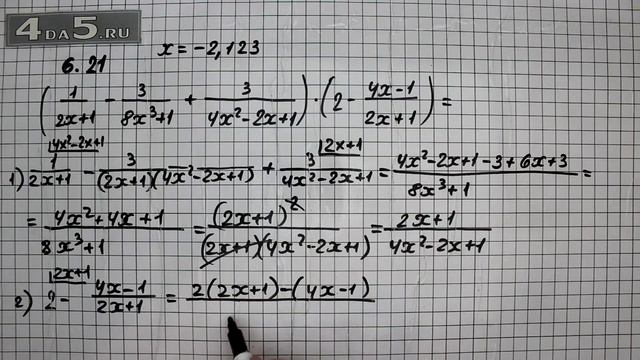 4DA5.RU
x = -2,123
6.21
(1/(2x+1) - 3/(8x³+1) + 3/(4x²-2x+1)) · (2 - (4x-1)/(2x+1)) =
1) 1/(2x+1) |4x²-2x+1 - 3/((2x+1)(4x²-2x+1)) + 3/(4x²-2x+1) |2x+1 = (4x²-2x+1-3+6x+3)/(8x³+1) =
= (4x²+4x+1)/(8x³+1) = (2x+1)²/((2x+1)(4x²-2x+1)) = (2x+1)/(4x²-2x+1)
2) 2 |2x+1 - (4x-1)/(2x+1) = 2(2x+1)-(4x-1)